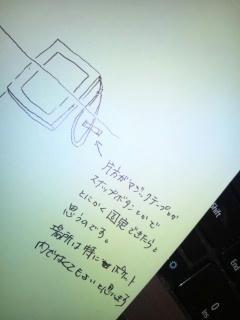 片方がマジックテープか
スナップボタンとかで
とにかく固定できたらと
思うのです。
場所は特に ポケット
内でなくてもよいと思います
Shift
End
Ins